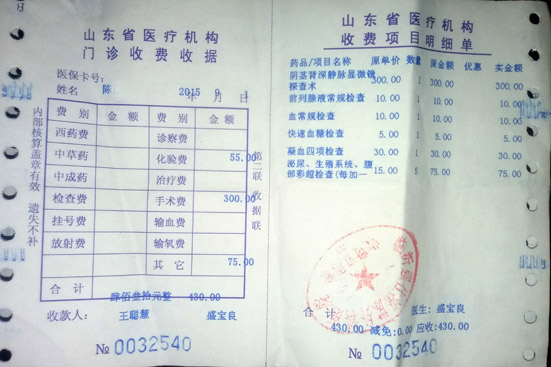 山东省医疗机构
门诊收费收据
医保卡号:
姓名 陈 2015 9 1 日
费 别 金 额 费 别 金 额
西药费 诊察费
中草药 化验费 55.00
中成药 治疗费
检查费 手术费 300.00
挂号费 输血费
放射费 输氧费
其 它 75.00
合 计 肆佰叁拾元整 430.00
收款人: 王聪慧 盛宝良
№ 0032540
内部核算盖章有效 遗失不补
第二联收据联
山东省医疗机构
收费项目明细单
药品/项目名称 原单价 数量 原金额 优惠 实金额
阴茎背深静脉显微镜
探查术 300.00 1 300.00 300.00
前列腺液常规检查 10.00 1 10.00 10.00
血常规检查 10.00 1 10.00 10.00
快速血糖检查 5.00 1 5.00 5.00
凝血四项检查 30.00 1 30.00 30.00
泌尿、生殖系统、腹
部彩超检查(每加一 15.00 5 75.00 75.00
合 计 医生: 盛宝良
430.00 减免:0.00 应收:430.00
№ 0032540